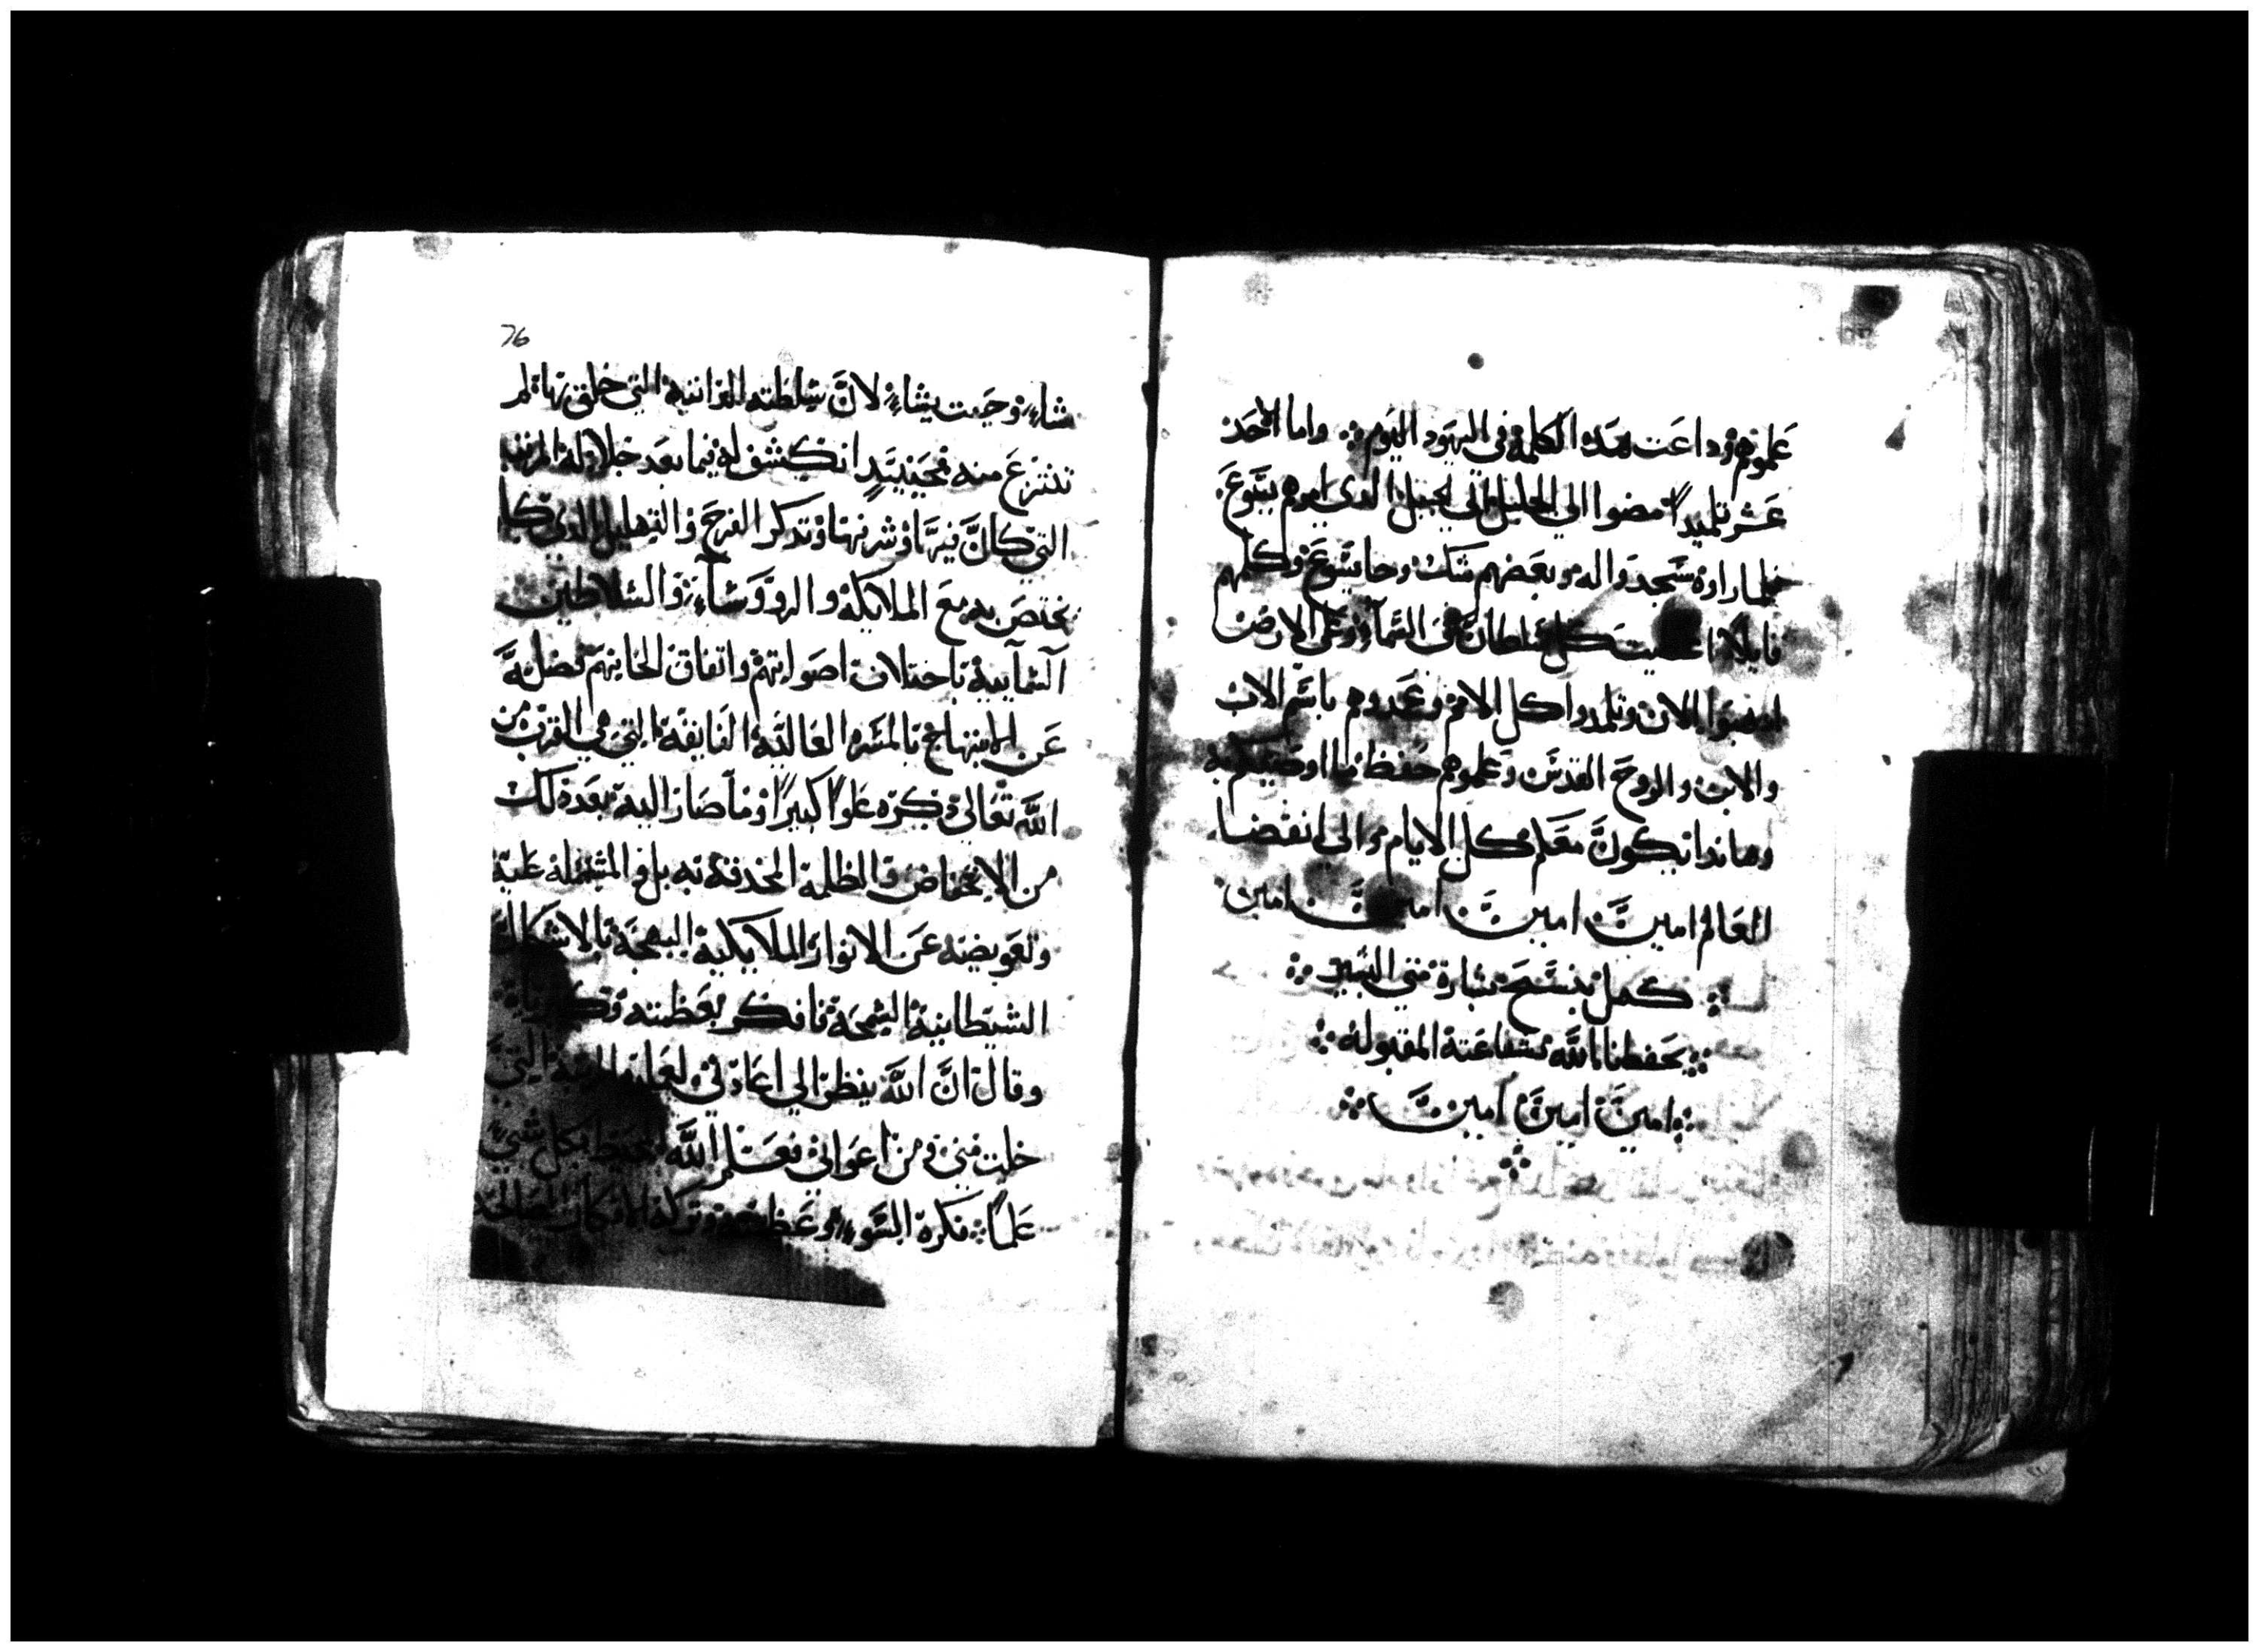 علموهم وداعت هذه الكلمة في اليهود اليوم ⁘ واما الاحد
عشر تلميداً مضوا الي الجليل الي الجبل الدي امرهم يسوع
فلما راوه سجدوا له وبعضهم شكك وجا يسوع وكلمهم
قايلاً اعطيت كل سلطان في السمآء وعلى الارض
امضوا الان وتلمدوا كل الامم وعمدوهم باسم الاب
والابن والروح القدس وعلموهم حفظ ما اوصيتكم به
وهاندا اكون معكم كل الايام والي انقضا
العالم امين امين امين امين
⁘ كمل بنسخ بشارة متي البشير ⁘
⁘ يحفظنا الله بشفاعته المقبوله ⁘
⁘ امين امين امين ⁘
76
شاء وحيت يشاء لان سلطته الدانيه التي خلق بها لم
تنتزع منه فحينيدٍ انكشف له فيما بعد جلالة المرتبه
التي كان فيها وشرفها وتدكر الفرح والتهليل الدي كان
يختص به مع الملايكة والروسآء والسلاطين
السمآيية باختلاف اصواتهم واتفاق الحانهم
عن الابتهاج بالمسره العالية الفايقة التي هي القرب من
الله تعالى دكره علواً كبيراً وما صار اليه بعد دلك
من الانخفاض والظلمة المحدقة به بل والمشتملة عليه
وتعويضه عن الانوار الملايكية البهجة بالاشكال
الشيطانية السمجة فافكر بعظمته
وقال ان الله ينظر الي اعادتي التي
خلت مني ومن اعواني فعلم الله بكل شي
علماً فكرة السو وعظمته وتركه